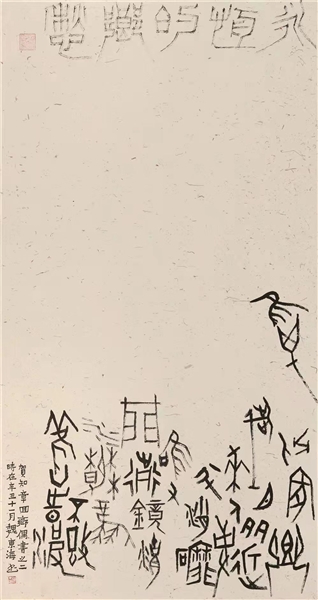 永恒的鄉愁
離
別家鄉
歲月多近
來人事
半消磨
唯有
門前鏡湖
水春風
不改
舊時波
賀知章回鄉偶書之二
時在辛丑十一月魏東海書